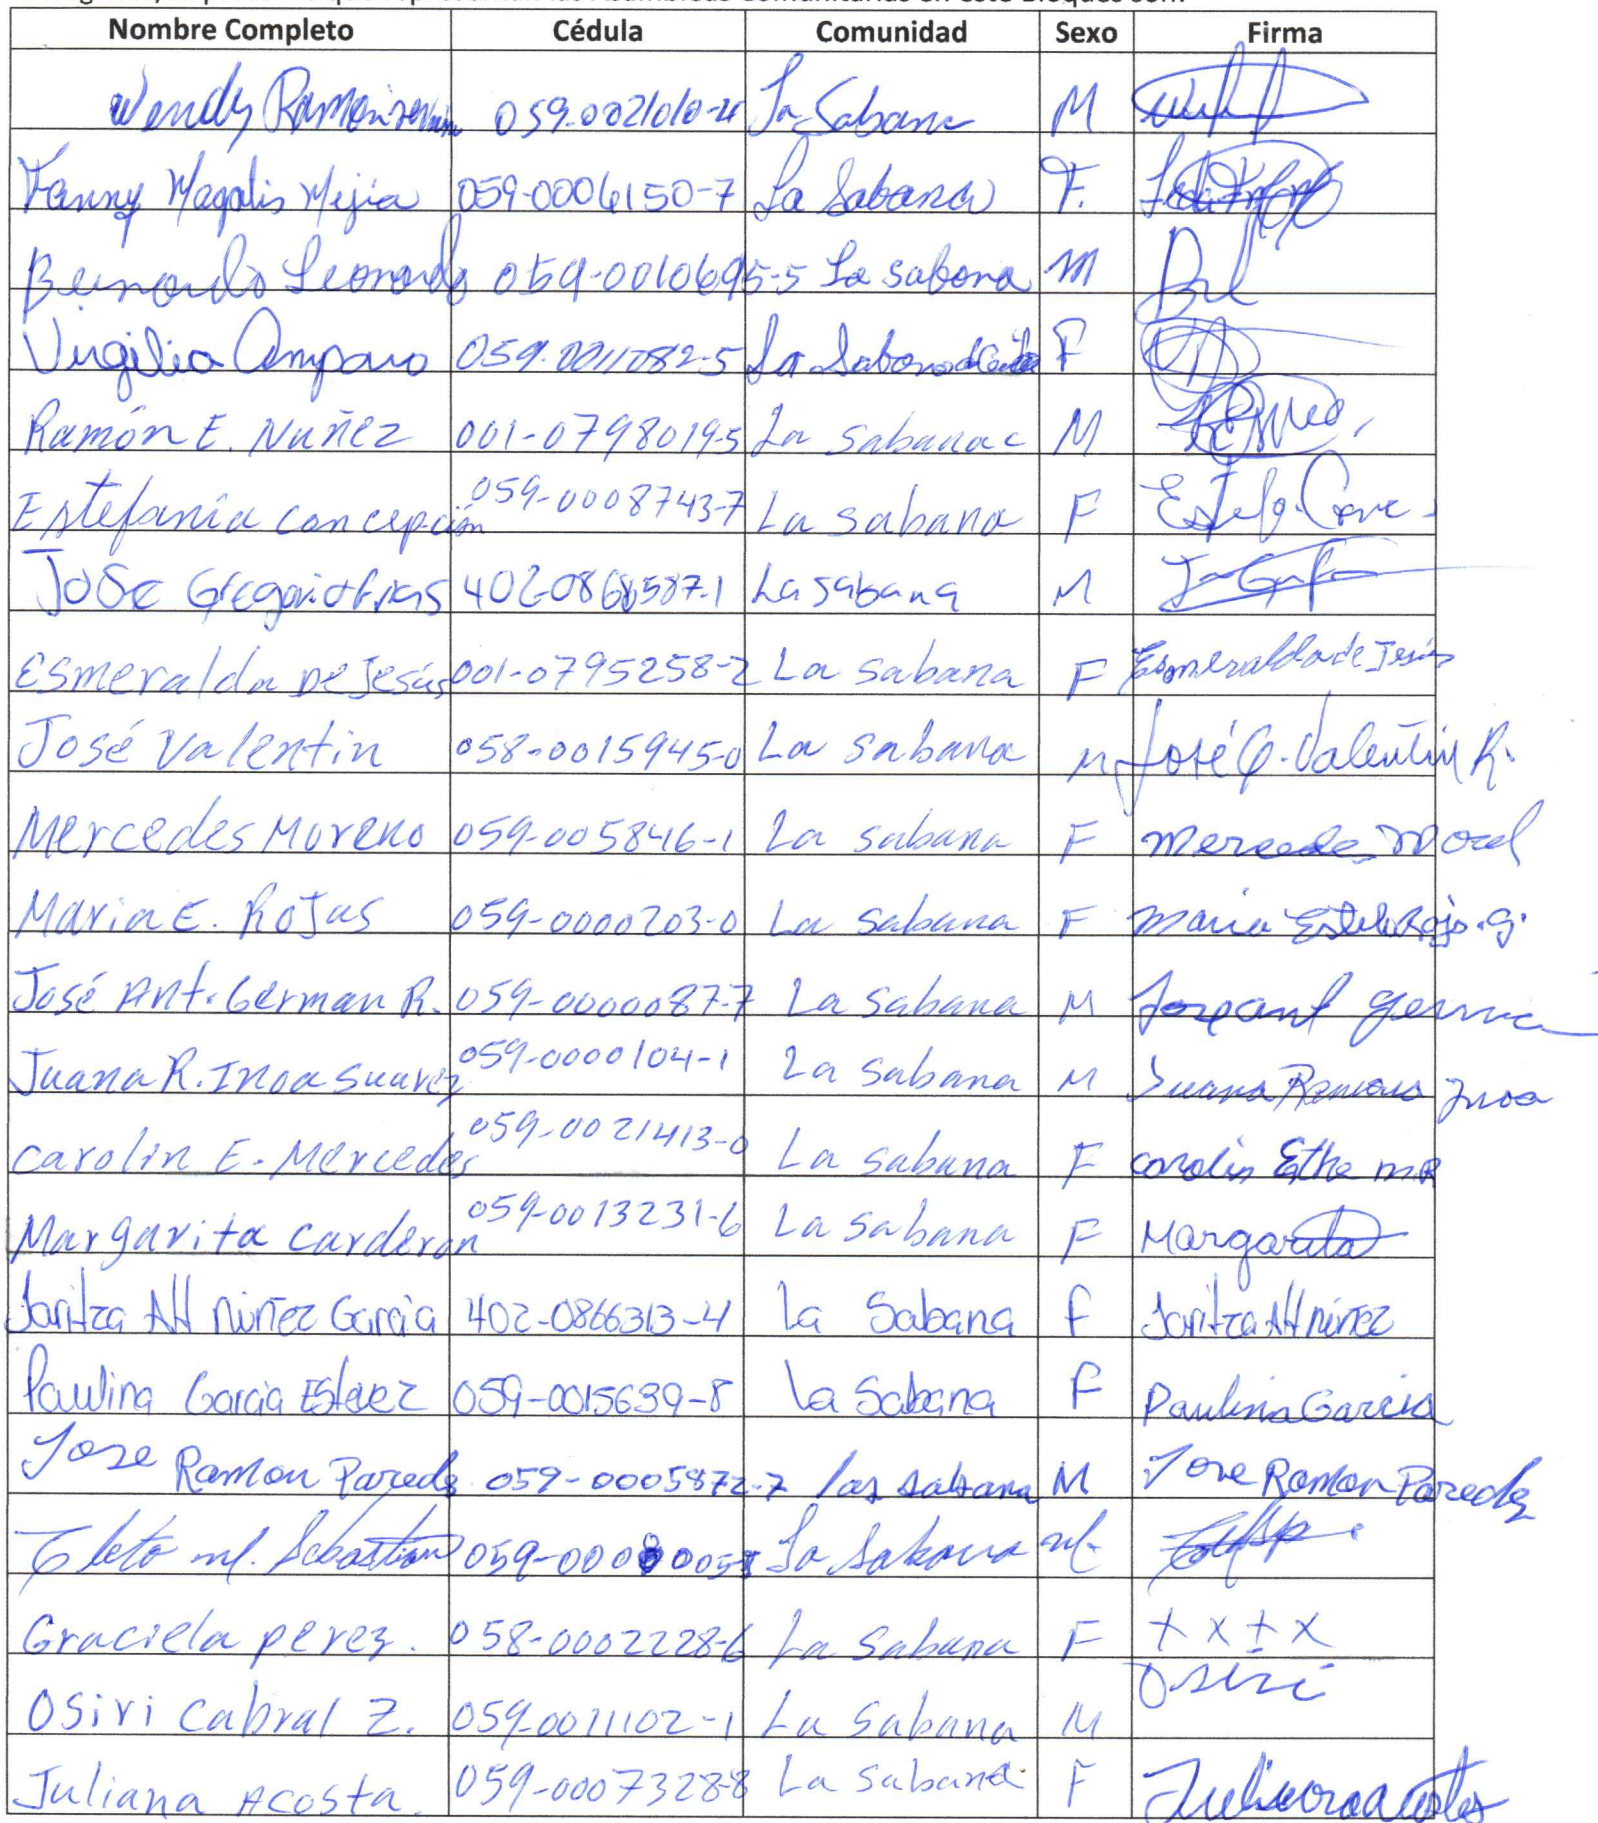 que representan las Asambleas Comunitarias en este Bloques son:
Nombre Completo Cédula Comunidad Sexo Firma
Wendy Ramon La Sabana M
Fanny Magalis Mejia 059-0006150-7 La Sabana F.
Bernardo Leonardo 059-0010695-5 La sabana M
Virgilia Amparo 059-0011082-5 La Sabana F
Ramón E. Nuñez 001-07980195 La Sabana c M
Estefanía Concepción 059-0008743-7 La Sabana F Estefa. Conc-
Jose Gregorio frias La sabana M
Esmeralda De Jesús 001-0795258-2 La Sabana F Esmeralda de Jesús
José Valentin 058-0015945-0 La Sabana M José Q. Valentin R.
Mercedes Moreno 059-005846-1 La Sabana F Mercedes
Maria E. Rojas 059-0000203-0 La Sabana F Maria Estela Rojas. G.
José Ant. German R. 059-0000087-7 La Sabana M Joseant German
Juana R. Inoa Suarez 059-0000104-1 La Sabana M Juana Ramona Inoa
Carolin E. Mercedes 059-0021413-0 La Sabana F Carolin Esthe M R
Margarita Carderon 059-0013231-6 La Sabana F Margarita
Jaritza Alt Nuñez Garcia 402-0866313-4 La Sabana F Jaritza Alt nuñez
Paulina Garcia Estevez 059-0015639-8 La Sabana F Paulina Garcia
Jose Ramon Paredes 059-0005872-7 las sabana M Jose Ramon Paredes
Cleto ml. Sebastian La Sabana M
Graciela perez. 058-0002228-6 La Sabana F + x + x
Osiri Cabral Z. 059-0011102-1 La Sabana M Osiri
Juliana Acosta. 059-0007328-8 La Sabana F Juliana Acosta